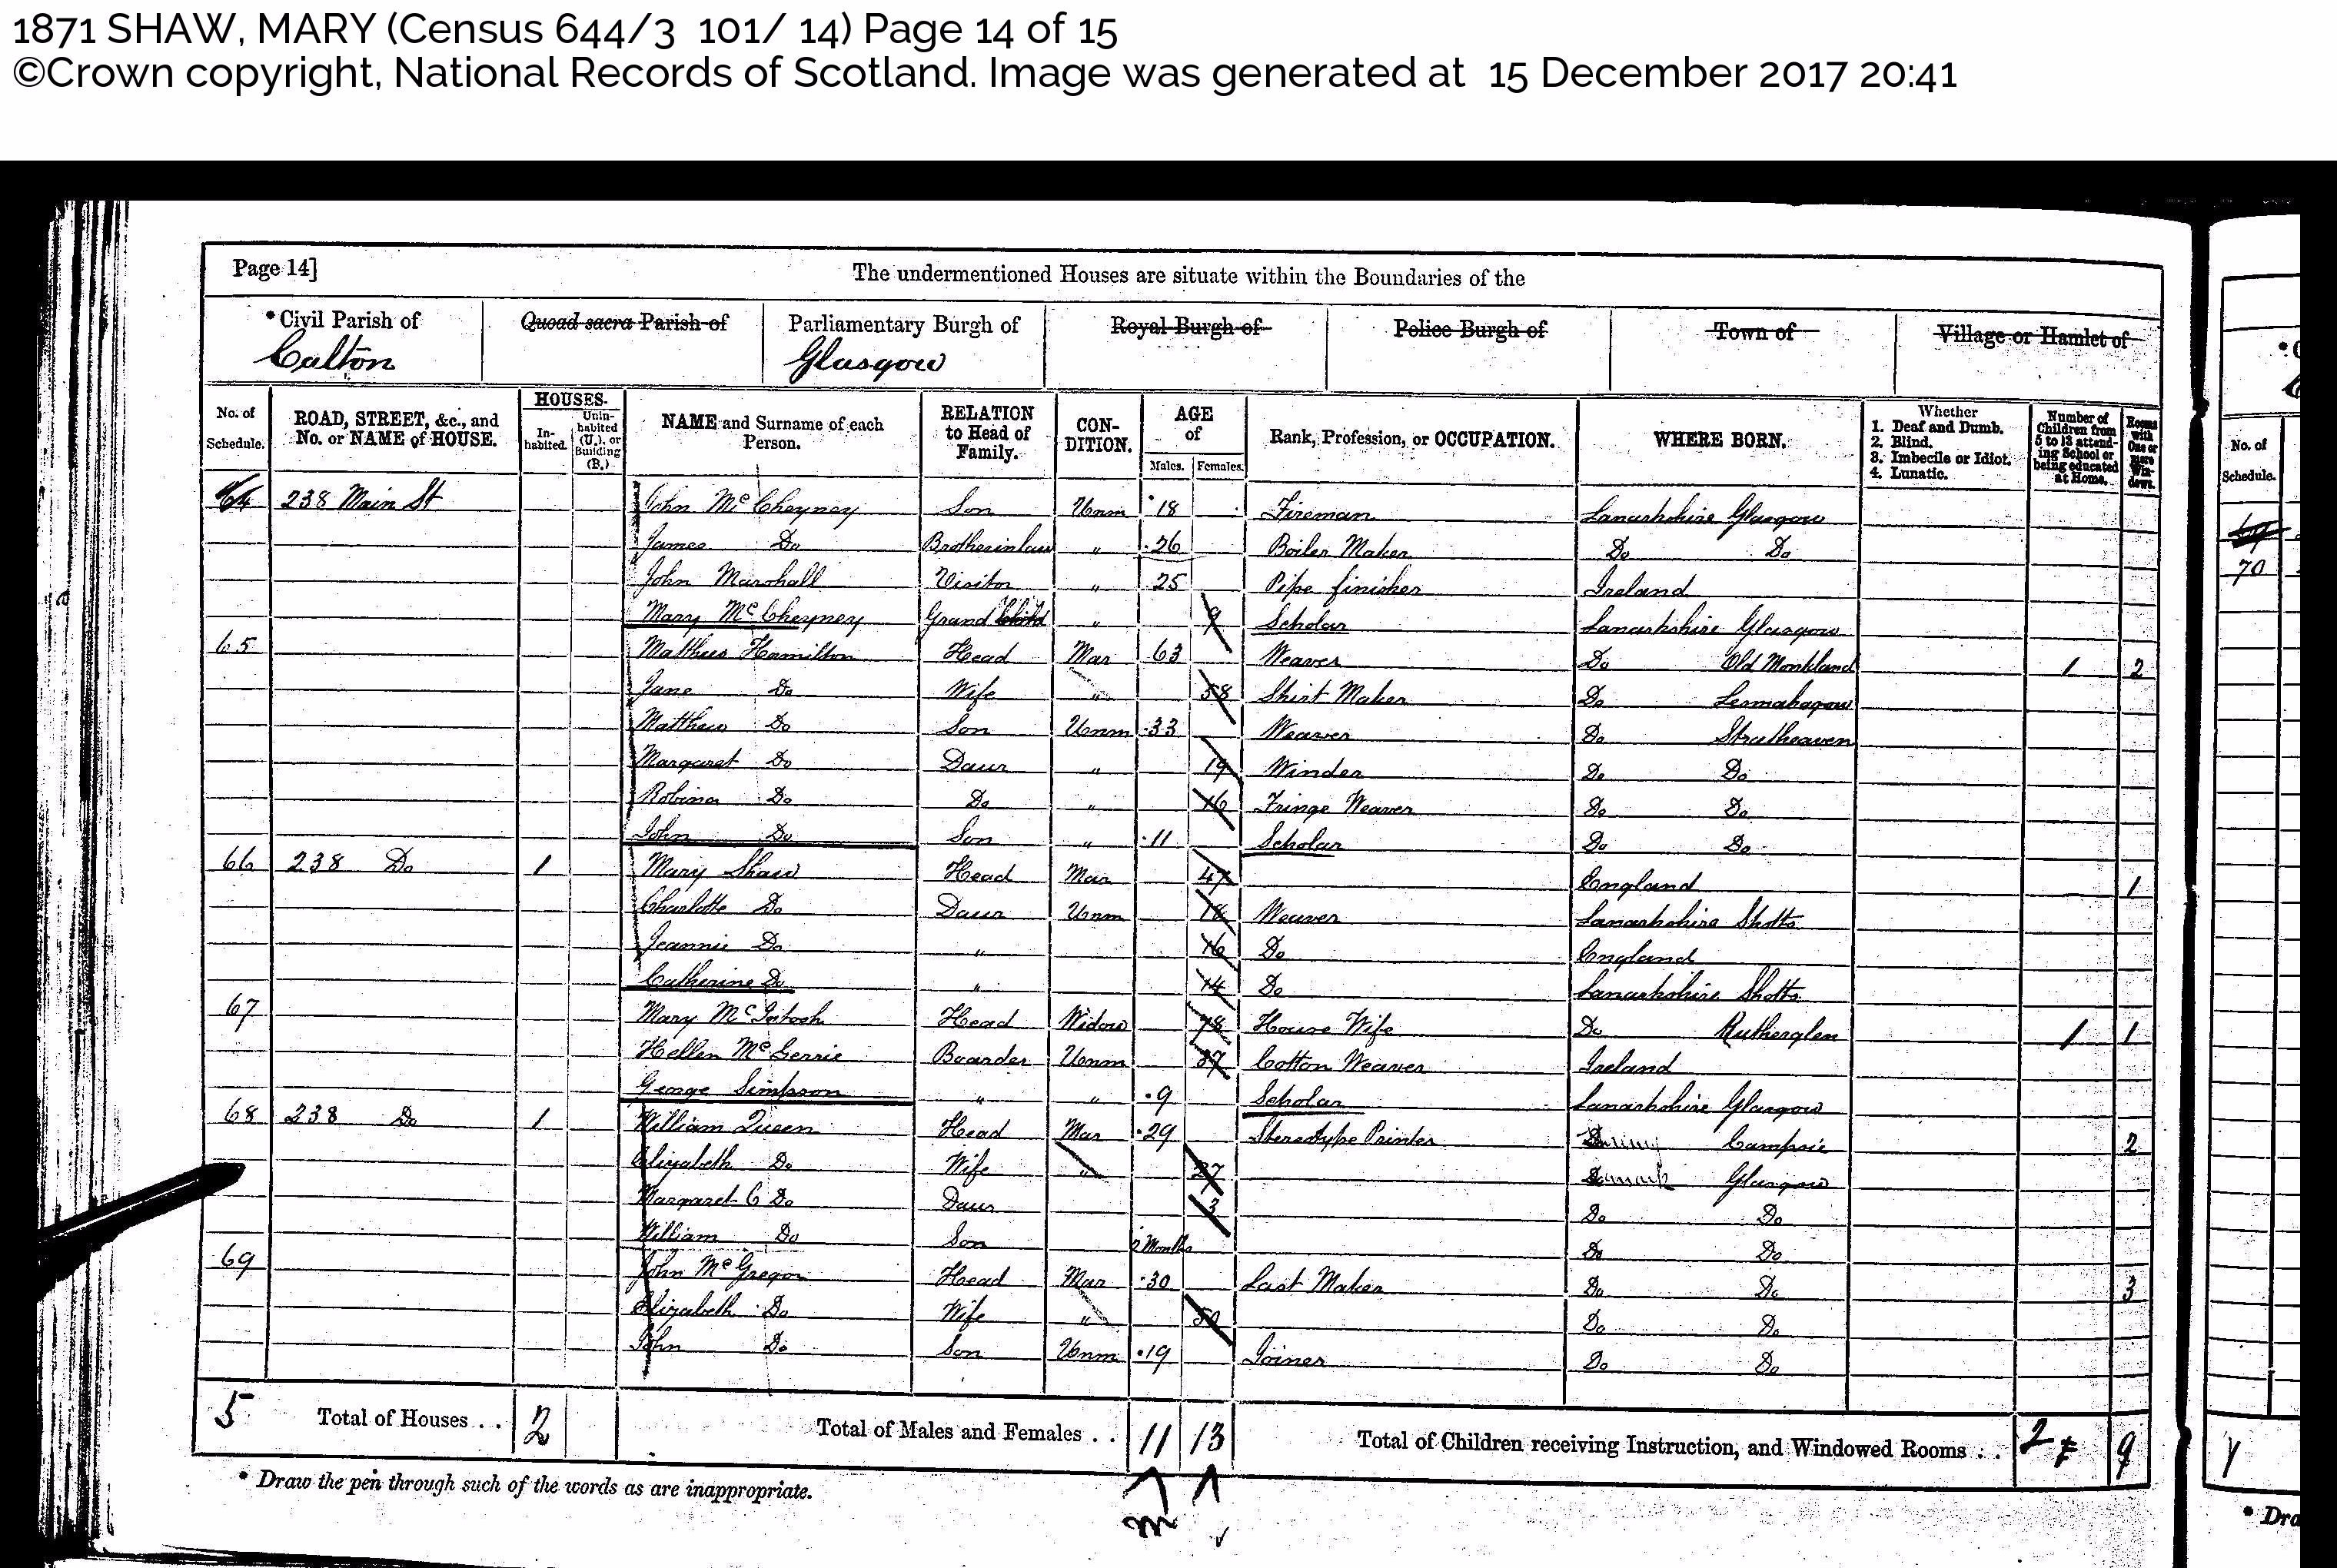 1871 SHAW, MARY (Census 644/3 101/ 14) Page 14 of 15
©Crown copyright, National Records of Scotland. Image was generated at 15 December 2017 20:41
Page 14]
The undermentioned Houses are situate within the Boundaries of the
*Civil Parish of Quoad sacra Parish of Parliamentary Burgh of Royal Burgh of Police Burgh of Town of Village or Hamlet of
Calton Glasgow
No. of Schedule. ROAD, STREET, &c., and No. or NAME of HOUSE. HOUSES. Inhabited. Uninhabited (U.), or Building (B.) NAME and Surname of each Person. RELATION to Head of Family. CONDITION. AGE of Males. Females. Rank, Profession, or OCCUPATION. WHERE BORN. Whether 1. Deaf and Dumb. 2. Blind. 3. Imbecile or Idiot. 4. Lunatic. Number of Children from 5 to 13 attending School or being educated at Home. Rooms with One or more Windows.
64 238 Main St John McCheyney Son Unm 18 Fireman Lanarkshire Glasgow
James Do Brotherinlaw " 26 Boiler Maker Do Do
John Marshall Visitor " 25 Pipe finisher Ireland
Mary McCheyney Grand Child " 9 Scholar Lanarkshire Glasgow
65 Matthew Hamilton Head Mar 63 Weaver Do Old Monkland 1 2
Jane Do Wife " 58 Shirt Maker Do Lesmahagow
Matthew Do Son Unm 33 Weaver Do Stratheaven
Margaret Do Daur " 19 Winder Do Do
Robina Do Do " 16 Fringe Weaver Do Do
John Do Son " 11 Scholar Do Do
66 238 Do 1 Mary Shaw Head Mar 47 England 1
Charlotte Do Daur Unm 18 Weaver Lanarkshire Shotts
Jeannie Do " 16 Do England
Catherine Do " 14 Do Lanarkshire Shotts
67 Mary McIntosh Head Widow 78 House Wife Do Rutherglen 1 1
Hellen Boarder Unm 37 Cotton Weaver Ireland
George Simpson " " 9 Scholar Lanarkshire Glasgow
68 238 Do 1 William Queen Head Mar 29 Stereotype Printer Campsie 2
Elizabeth Do Wife " 27 Lanark Glasgow
Margaret C Do Daur 3 Do Do
William Do Son 2 Months Do Do
69 John McGregor Head Mar 30 Last Maker Do Do 3
Elizabeth Do Wife " 50 Do Do
John Do Son Unm 19 Joiner Do Do
5 Total of Houses . . 2 Total of Males and Females . . 11 13 Total of Children receiving Instruction, and Windowed Rooms . . 2 9
* Draw the pen through such of the words as are inappropriate.
No. of
Schedule.
69
70
* Dra